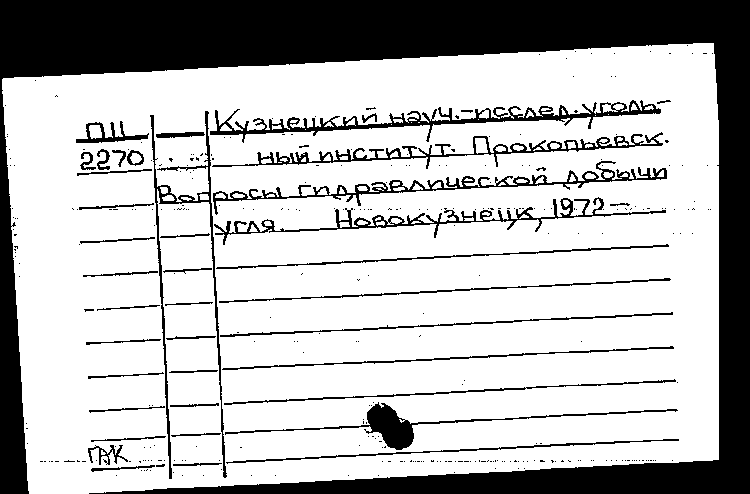 П11 Кузнецкий науч.-исслед. уголь-
2270 ный институт. Прокопьевск.
Вопросы гидравлической добычи
угля. Новокузнецк, 1972-
ГАК